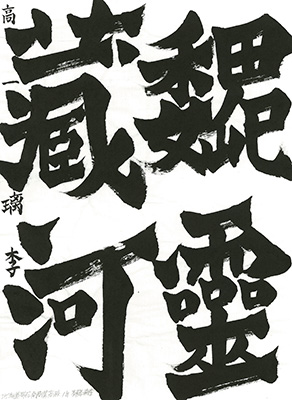 魏靈
藏河
高一 璃李